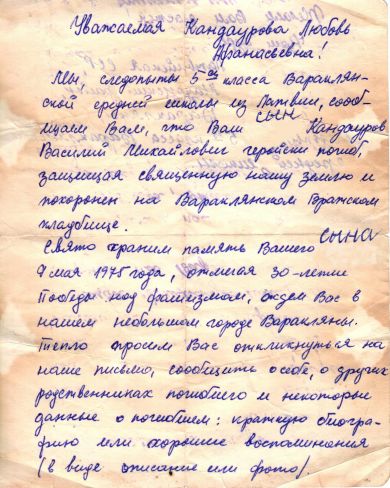 Уважаемая Кандаурова Любовь
Афанасьевна!
Мы, следопыты 5ого класса Вараклян-
ской средней школы из Латвии, сооб-
щаем Вам, что Ваш сын Кандауров
Василий Михайлович геройски погиб,
защищая священную нашу землю и
похоронен на Вараклянском Братском
кладбище.
Свято храним память Вашего сына
9 мая 1975 года, отмечая 30-летие
Победы над фашизмом, ждем Вас в
нашем небольшом городе Варакляны.
Тепло просим Вас откликнуться на
наше письмо, сообщить о себе, о других
родственниках погибшего и некоторые
данные о погибшем: краткую биогра-
фию или хорошие воспоминания
(в виде описание или фото).